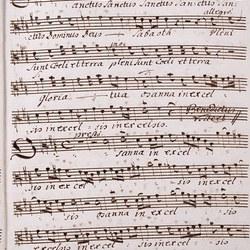 Sanctus Sanctus Sanctus Sanctus San-
allegro
ctus dominus deus Sabaoth pleni
Sunt Coeli et terra pleni sunt Coeli et terra
gloria tua osanna in excel
Benedictus
tacet
sis in excel - sis in excelsis.
presto
Osanna in excel
sis in excel - sis in excel
sis osanna in excel - sis
sis in excel - sis in excel